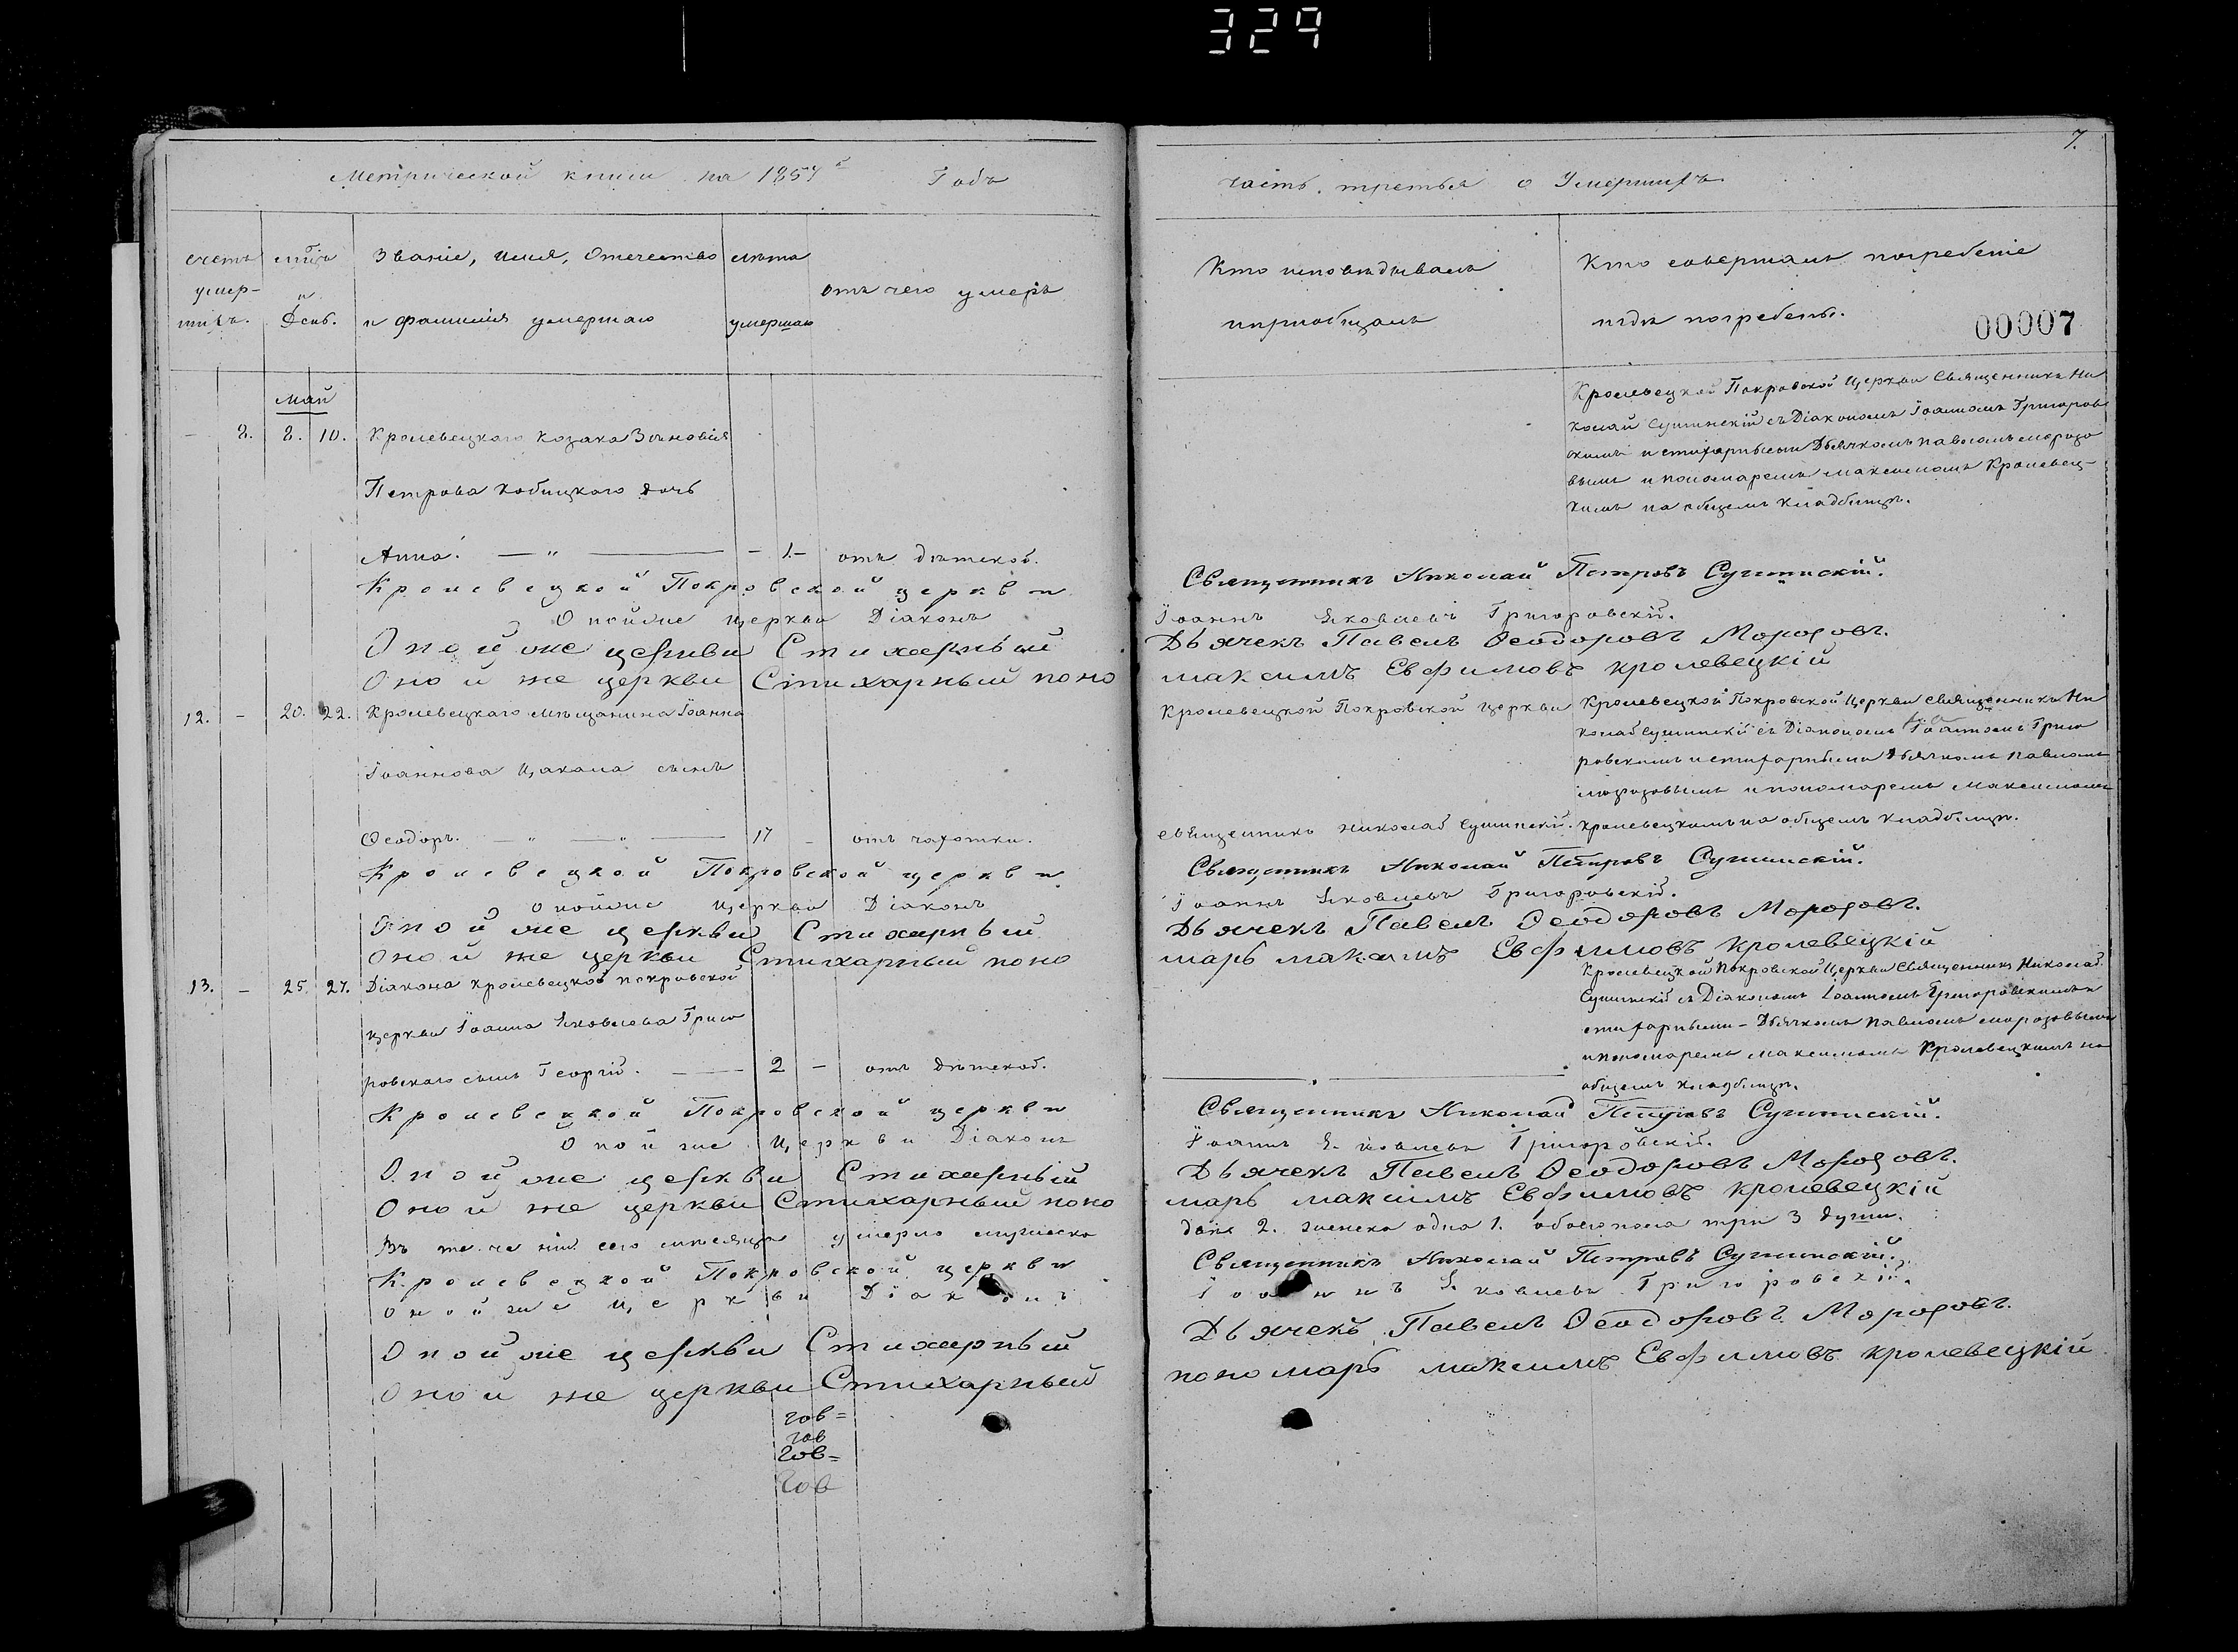 329
7.
Метрической книги на 1857й Годъ
часть третья о Умершихъ
счетъ умер-шихъ.
мѣсяцъ и День.
Званіе, имя, Отечество
и фамилія умершаго
лѣта
умершаго
отъ чего умеръ
Кто исповѣдывалъ
и пріобщалъ
Кто совершалъ погребеніе
и гдѣ погребены.
00007
Май
- 8. 8. 10. Кролевецкаго козака Зѣновія
Петрова Кобицкаго дочь
Анна. — " — - 1.- отъ дѣтской.
Кролевецкой Покровской Церкви Священникъ Ни
колай Сушинскій съ Діакономъ Іоанномъ Григоров
скимъ и стихарными Дьячкомъ Павломъ Морозо
вымъ и пономаремъ Максимомъ Кролевец-
кимъ на общемъ кладбищѣ.
Кролевецкой Покровской церкви Священникъ Николай Петровъ Сушинскій.
Оной же Церкви Діаконъ Іоаннъ Яковлевъ Григоровскій.
Оной же церкви Стихарный Дьячекъ Павелъ Ѳеодоровъ Морозовъ.
Оной же церкви Стихарный поно максимъ Евфимовъ кролевецкій
12. - 20. 22. Кролевецкаго мѣщанина Іоанна
Іоаннова Цакала сынъ
Ѳеодоръ. — " — " — 17 - отъ чахотки.
Кролевецкой Покровской Церкви
священникъ Николай Сушинскій.
Кролевецкой Покровской Церкви священникъ Ни
колай Сушинскій съ Діакономъ Іоанномъ Григо
ровскимъ и стихарными Дьячкомъ Павломъ
Морозовымъ и пономаремъ Максимомъ
Кролевецкимъ на общемъ кладбищѣ.
Кролевецкой Покровской церкви Священникъ Николай Петровъ Сушинскій.
Оной же Церкви Діаконъ Іоаннъ Яковлевъ Григоровскій.
Оной же церкви Стихарный Дьячекъ Павелъ Ѳеодоровъ Морозовъ.
Оной же церкви Стихарный поно марь максимъ Евфимовъ кролевецкій
13. - 25 27. Діакона Кролевецкой Покровской
церкви Іоанна Яковлева Григо
ровскаго сынъ Георгій. — 2 - отъ дѣтской.
Кролевецкой Покровской Церкви Священникъ Николай
Сушинскій съ Діакономъ Іоанномъ Григоровскимъ и
стихарными - Дьячкомъ Павломъ Морозовымъ
и пономаремъ Максимомъ Кролевецкимъ на
общемъ кладбищѣ.
Кролевецкой Покровской церкви Священникъ Николай Петровъ Сушинскій.
Оной же Церкви Діаконъ Іоаннъ Яковлевъ Григоровскій.
Оной же церкви Стихарный Дьячекъ Павелъ Ѳеодоровъ Морозовъ.
Оной же церкви Стихарный поно марь максимъ Евфимовъ кролевецкій
Въ теченіи сего мѣсяца умерло мужеска
два 2. женска одна 1. обоего пола три 3 души.
Кролевецкой Покровской церкви Священникъ Николай Петровъ Сушинскій.
Оной же Церкви Діаконъ Іоаннъ Яковлевъ Григоровскій.
Оной же церкви Стихарный Дьячекъ Павелъ Ѳеодоровъ Морозовъ.
Оной же церкви Стихарный пономарь максимъ Евфимовъ кролевецкій
гов=
гов
гов=
гов